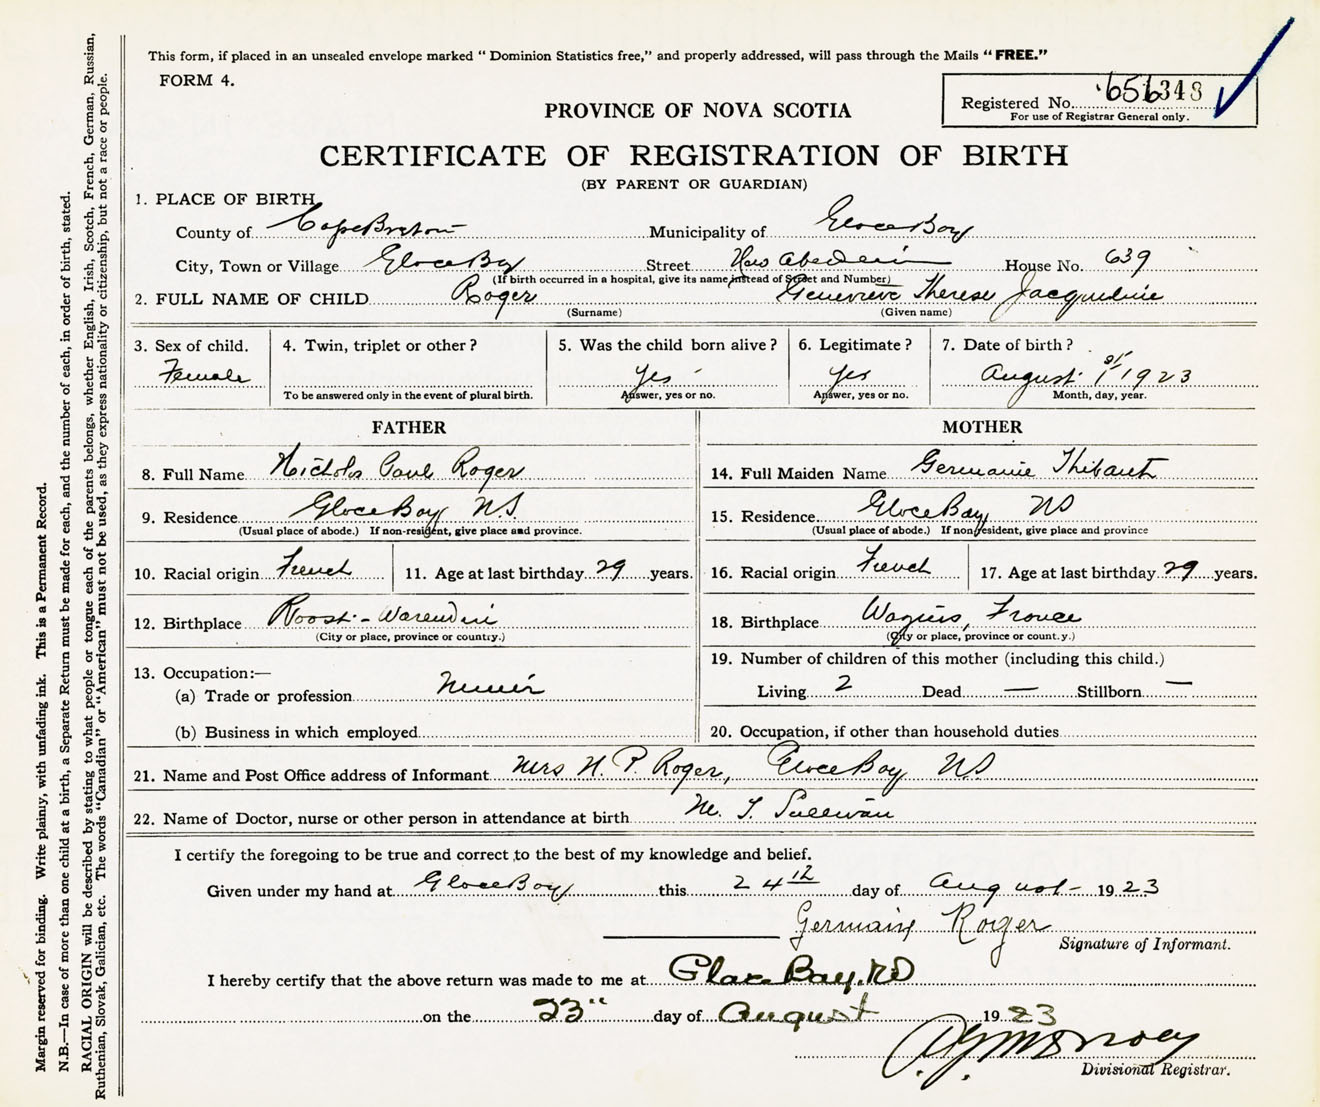 This form, if placed in an unsealed envelope marked “ Dominion Statistics free,” and properly addressed, will pass through the Mails “ FREE.”
FORM 4.
Registered No. 656348
For use of Registrar General only.
PROVINCE OF NOVA SCOTIA
CERTIFICATE OF REGISTRATION OF BIRTH
(BY PARENT OR GUARDIAN)
1. PLACE OF BIRTH
County of Cape Breton Municipality of Glace Bay
City, Town or Village Glace Bay Street New Aberdeen House No. 639
(If birth occurred in a hospital, give its name instead of Street and Number)
2. FULL NAME OF CHILD Roger Genevieve Therese Jacqueline
(Surname) (Given name)
3. Sex of child. 4. Twin, triplet or other ? 5. Was the child born alive ? 6. Legitimate ? 7. Date of birth ?
Female Yes Yes August 1st 1923
To be answered only in the event of plural birth. Answer, yes or no. Answer, yes or no. Month, day, year.
FATHER MOTHER
8. Full Name Nicholas Paul Roger 14. Full Maiden Name Germanie Thibaut
9. Residence Glace Bay N.S. 15. Residence Glace Bay NS
(Usual place of abode.) If non-resident, give place and province. (Usual place of abode.) If non-resident, give place and province
10. Racial origin French 11. Age at last birthday 29 years. 16. Racial origin French 17. Age at last birthday 29 years.
12. Birthplace Roost - Warendin 18. Birthplace Wagnies, France
(City or place, province or country.) (City or place, province or count.y.)
13. Occupation:—
(a) Trade or profession Miner
(b) Business in which employed
19. Number of children of this mother (including this child.)
Living 2 Dead — Stillborn —
20. Occupation, if other than household duties
21. Name and Post Office address of Informant Mrs N. P. Roger, Glace Bay NS
22. Name of Doctor, nurse or other person in attendance at birth M. T. Sullivan
I certify the foregoing to be true and correct to the best of my knowledge and belief.
Given under my hand at Glace Bay this 24th day of August 1923
Germaine Roger
Signature of Informant.
I hereby certify that the above return was made to me at Glace Bay, NS
on the 23" day of August 1923
Divisional Registrar.
Margin reserved for binding. Write plainly, with unfading ink. This is a Permanent Record.
N.B.—In case of more than one child at a birth, a Separate Return must be made for each, and the number of each, in order of birth, stated.
RACIAL ORIGIN will be described by stating to what people or tongue each of the parents belongs, whether English, Irish, Scotch, French, German, Russian,
Ruthenian, Slovak, Galician, etc. The words “Canadian” or “American” must not be used, as they express nationality or citizenship, but not a race or people.